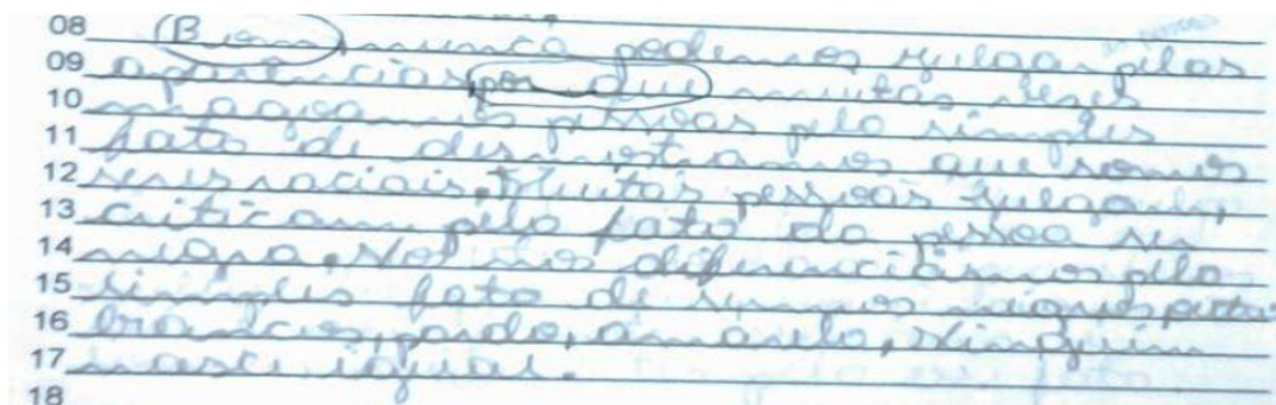 08 Bom, nunca podemos julgar pelas
09 aparências por que muitas vezes
10 magoamos pessoas pelo simples
11 fato de demostramos que somos
12 seres raciais. Muitas pessoas julgam,
13 criticam pelo fato da pessoa ser
14 negra. Nos diferenciamos pelo
15 simples fato de sermos negros
16 brancos, pardo, amarelo, Ninguém
17 nasci igual.
18